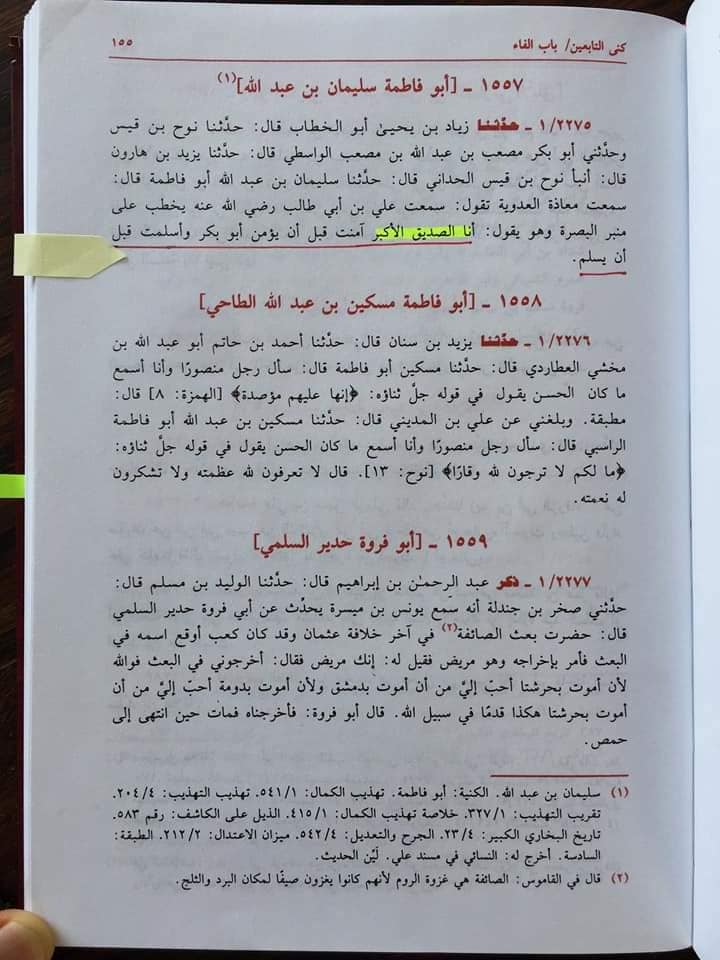 كنى التابعين/ باب الفاء ١٥٥
١٥٥٧ - [أبو فاطمة سليمان بن عبد الله](١)
١/٢٢٧٥ - حدّثنا زياد بن يحيى أبو الخطاب قال: حدّثنا نوح بن قيس
وحدّثني أبو بكر مصعب بن عبد الله بن مصعب الواسطي قال: حدّثنا يزيد بن هارون
قال: أنبأ نوح بن قيس الحداني قال: حدّثنا سليمان بن عبد الله أبو فاطمة قال:
سمعت معاذة العدوية تقول: سمعت علي بن أبي طالب رضي الله عنه يخطب على
منبر البصرة وهو يقول: أنا الصديق الأكبر آمنت قبل أن يؤمن أبو بكر وأسلمت قبل
أن يسلم.
١٥٥٨ - [أبو فاطمة مسكين بن عبد الله الطاحي]
١/٢٢٧٦ - حدّثنا يزيد بن سنان قال: حدّثنا أحمد بن حاتم أبو عبد الله بن
مخشي العطاردي قال: حدّثنا مسكين أبو فاطمة قال: سأل رجل منصورًا وأنا أسمع
ما كان الحسن يقول في قوله جلّ ثناؤه: ﴿إنها عليهم مؤصدة﴾ [الهمزة: ٨] قال:
مطبقة. وبلغني عن علي بن المديني قال: حدّثنا مسكين بن عبد الله أبو فاطمة
الراسبي قال: سأل رجل منصورًا وأنا أسمع ما كان الحسن يقول في قوله جلّ ثناؤه:
﴿ما لكم لا ترجون لله وقارًا﴾ [نوح: ١٣]. قال لا تعرفون لله عظمته ولا تشكرون
له نعمته.
١٥٥٩ - [أبو فروة حدير السلمي]
١/٢٢٧٧ - ذكر عبد الرحمٰن بن إبراهيم قال: حدّثنا الوليد بن مسلم قال:
حدّثني صخر بن جندلة أنه سمع يونس بن ميسرة يحدّث عن أبي فروة حدير السلمي
قال: حضرت بعث الصائفة(٢) في آخر خلافة عثمان وقد كان كعب أوقع اسمه في
البعث فأمر بإخراجه وهو مريض فقيل له: إنك مريض فقال: أخرجوني في البعث فوالله
لأن أموت بحرشتا أحبّ إليّ من أن أموت بدمشق ولأن أموت بدومة أحبّ إليّ من أن
أموت بحرشتا هكذا قدمًا في سبيل الله. قال أبو فروة: فأخرجناه فمات حين انتهى إلى
حمص.
(١) سليمان بن عبد الله. الكنية: أبو فاطمة. تهذيب الكمال: ٥٤١/١. تهذيب التهذيب: ٢٠٤/٤.
تقريب التهذيب: ٣٢٧/١. خلاصة تهذيب الكمال: ٤١٥/١. الذيل على الكاشف: رقم ٥٨٣.
تاريخ البخاري الكبير: ٢٣/٤. الجرح والتعديل: ٥٤٢/٤. ميزان الاعتدال: ٢١٢/٢. الطبقة:
السادسة. أخرج له: النسائي في مسند علي. ليّن الحديث.
(٢) قال في القاموس: الصائفة هي غزوة الروم لأنهم كانوا يغزون صيفًا لمكان البرد والثلج.